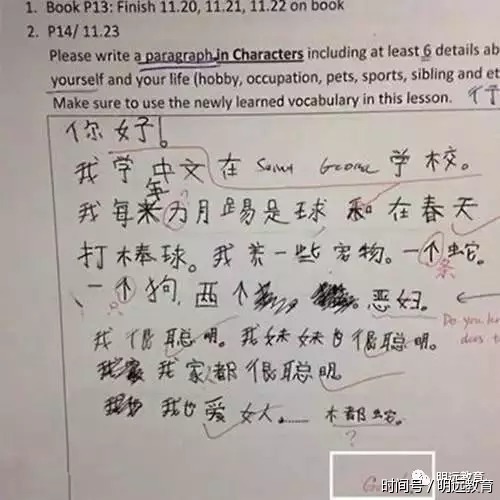 1. Book P13: Finish 11.20, 11.21, 11.22 on book
2. P14/ 11.23
Please write a paragraph in Characters including at least 6 details ab
yourself and your life (hobby, occupation, pets, sports, sibling and et
Make sure to use the newly learned vocabulary in this lesson.
你好!
我学中文在 Saint George 学校。
年
我每月踢足球 和 在春天
打棒球。我养一些宠物。一个蛇。
条
一个狗, 两个 恶妇。
Do you
does t
我很聪明。我妹妹也很聪明。
我家都很聪明
我也爱女人......
?
时间号/明远教育
明远教育